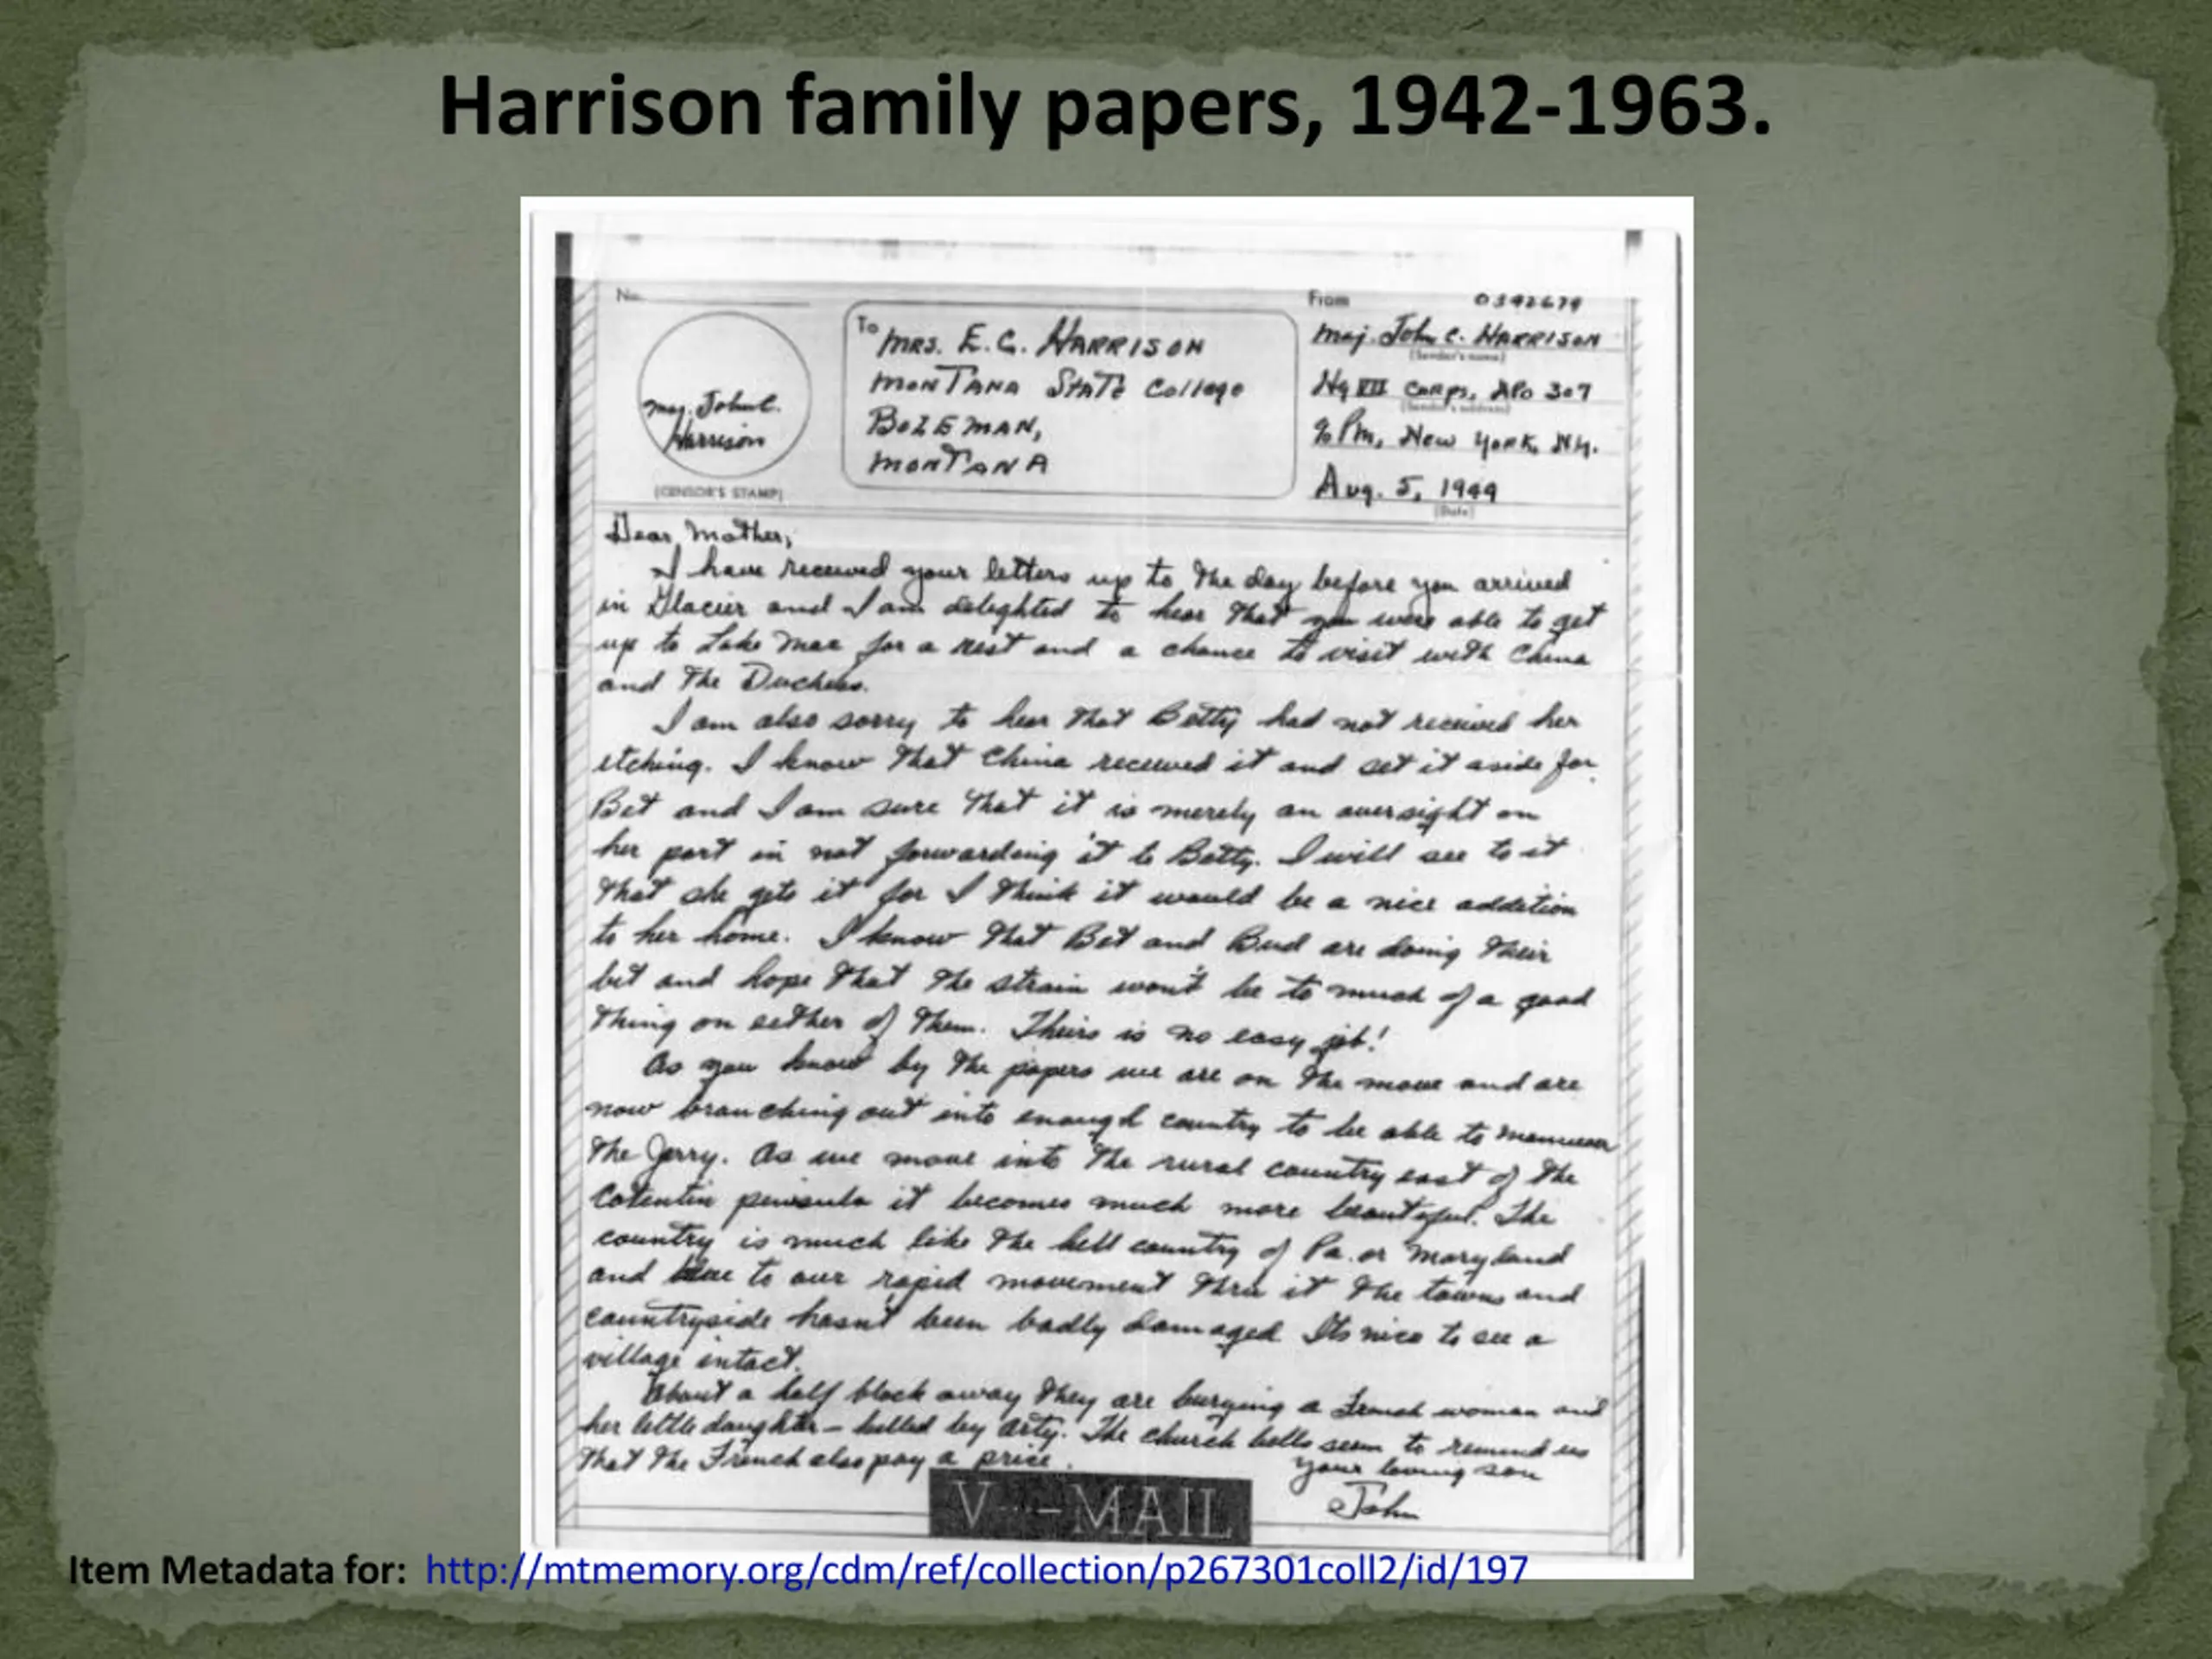 Harrison family papers, 1942-1963.
No.
From 0392679
To Mrs. E. C. Harrison
Montana State College
Bozeman,
Montana
Maj. John C.
Harrison
(CENSOR'S STAMP)
Maj. John C. Harrison
(Sender's name)
Hq VII Corps, APO 307
(Sender's address)
% PM, New York, N.Y.
Aug. 5, 1944
(Date)
Dear Mother,
I have received your letters up to the day before you arrived
in Glacier and I am delighted to hear that you were able to get
up to Lake Mac for a rest and a chance to visit with China
and the Duchess.
I am also sorry to hear that Betty had not received her
etching. I know that China received it and set it aside for
Bet and I am sure that it is merely an oversight on
her part in not forwarding it to Betty. I will see to it
that she gets it for I think it would be a nice addition
to her home. I know that Bet and Bud are doing their
bit and hope that the strain won't be to much of a good
thing on either of them. Theirs is no easy job!
As you know by the papers we are on the move and are
now branching out into enough country to be able to
the Jerry. As we move into the rural country east of the
Cotentin peninsula it becomes much more beautiful. The
country is much like the hill country of Pa. or Maryland
and due to our rapid movement thru it the towns and
countryside hasn't been badly damaged. Its nice to see a
village intact.
About a half block away they are burying a French woman and
her little daughter – killed by arty. The church bells seem to remind us
that the French also pay a price.
Your loving son
John
V--MAIL
Item Metadata for: http://mtmemory.org/cdm/ref/collection/p267301coll2/id/197